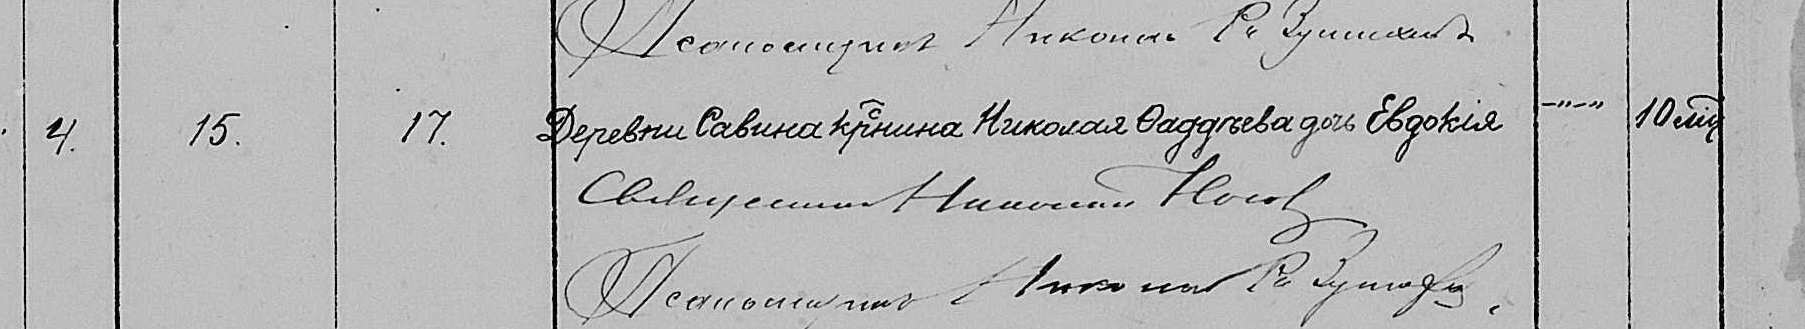 Псаломщикъ Николай
4. 15. 17. Деревни Савина кр̃нина Николая Ѳаддѣева дочь Евдокія -"-"- 10 мц̃
Священникъ Николай Носов
Псаломщикъ Николай